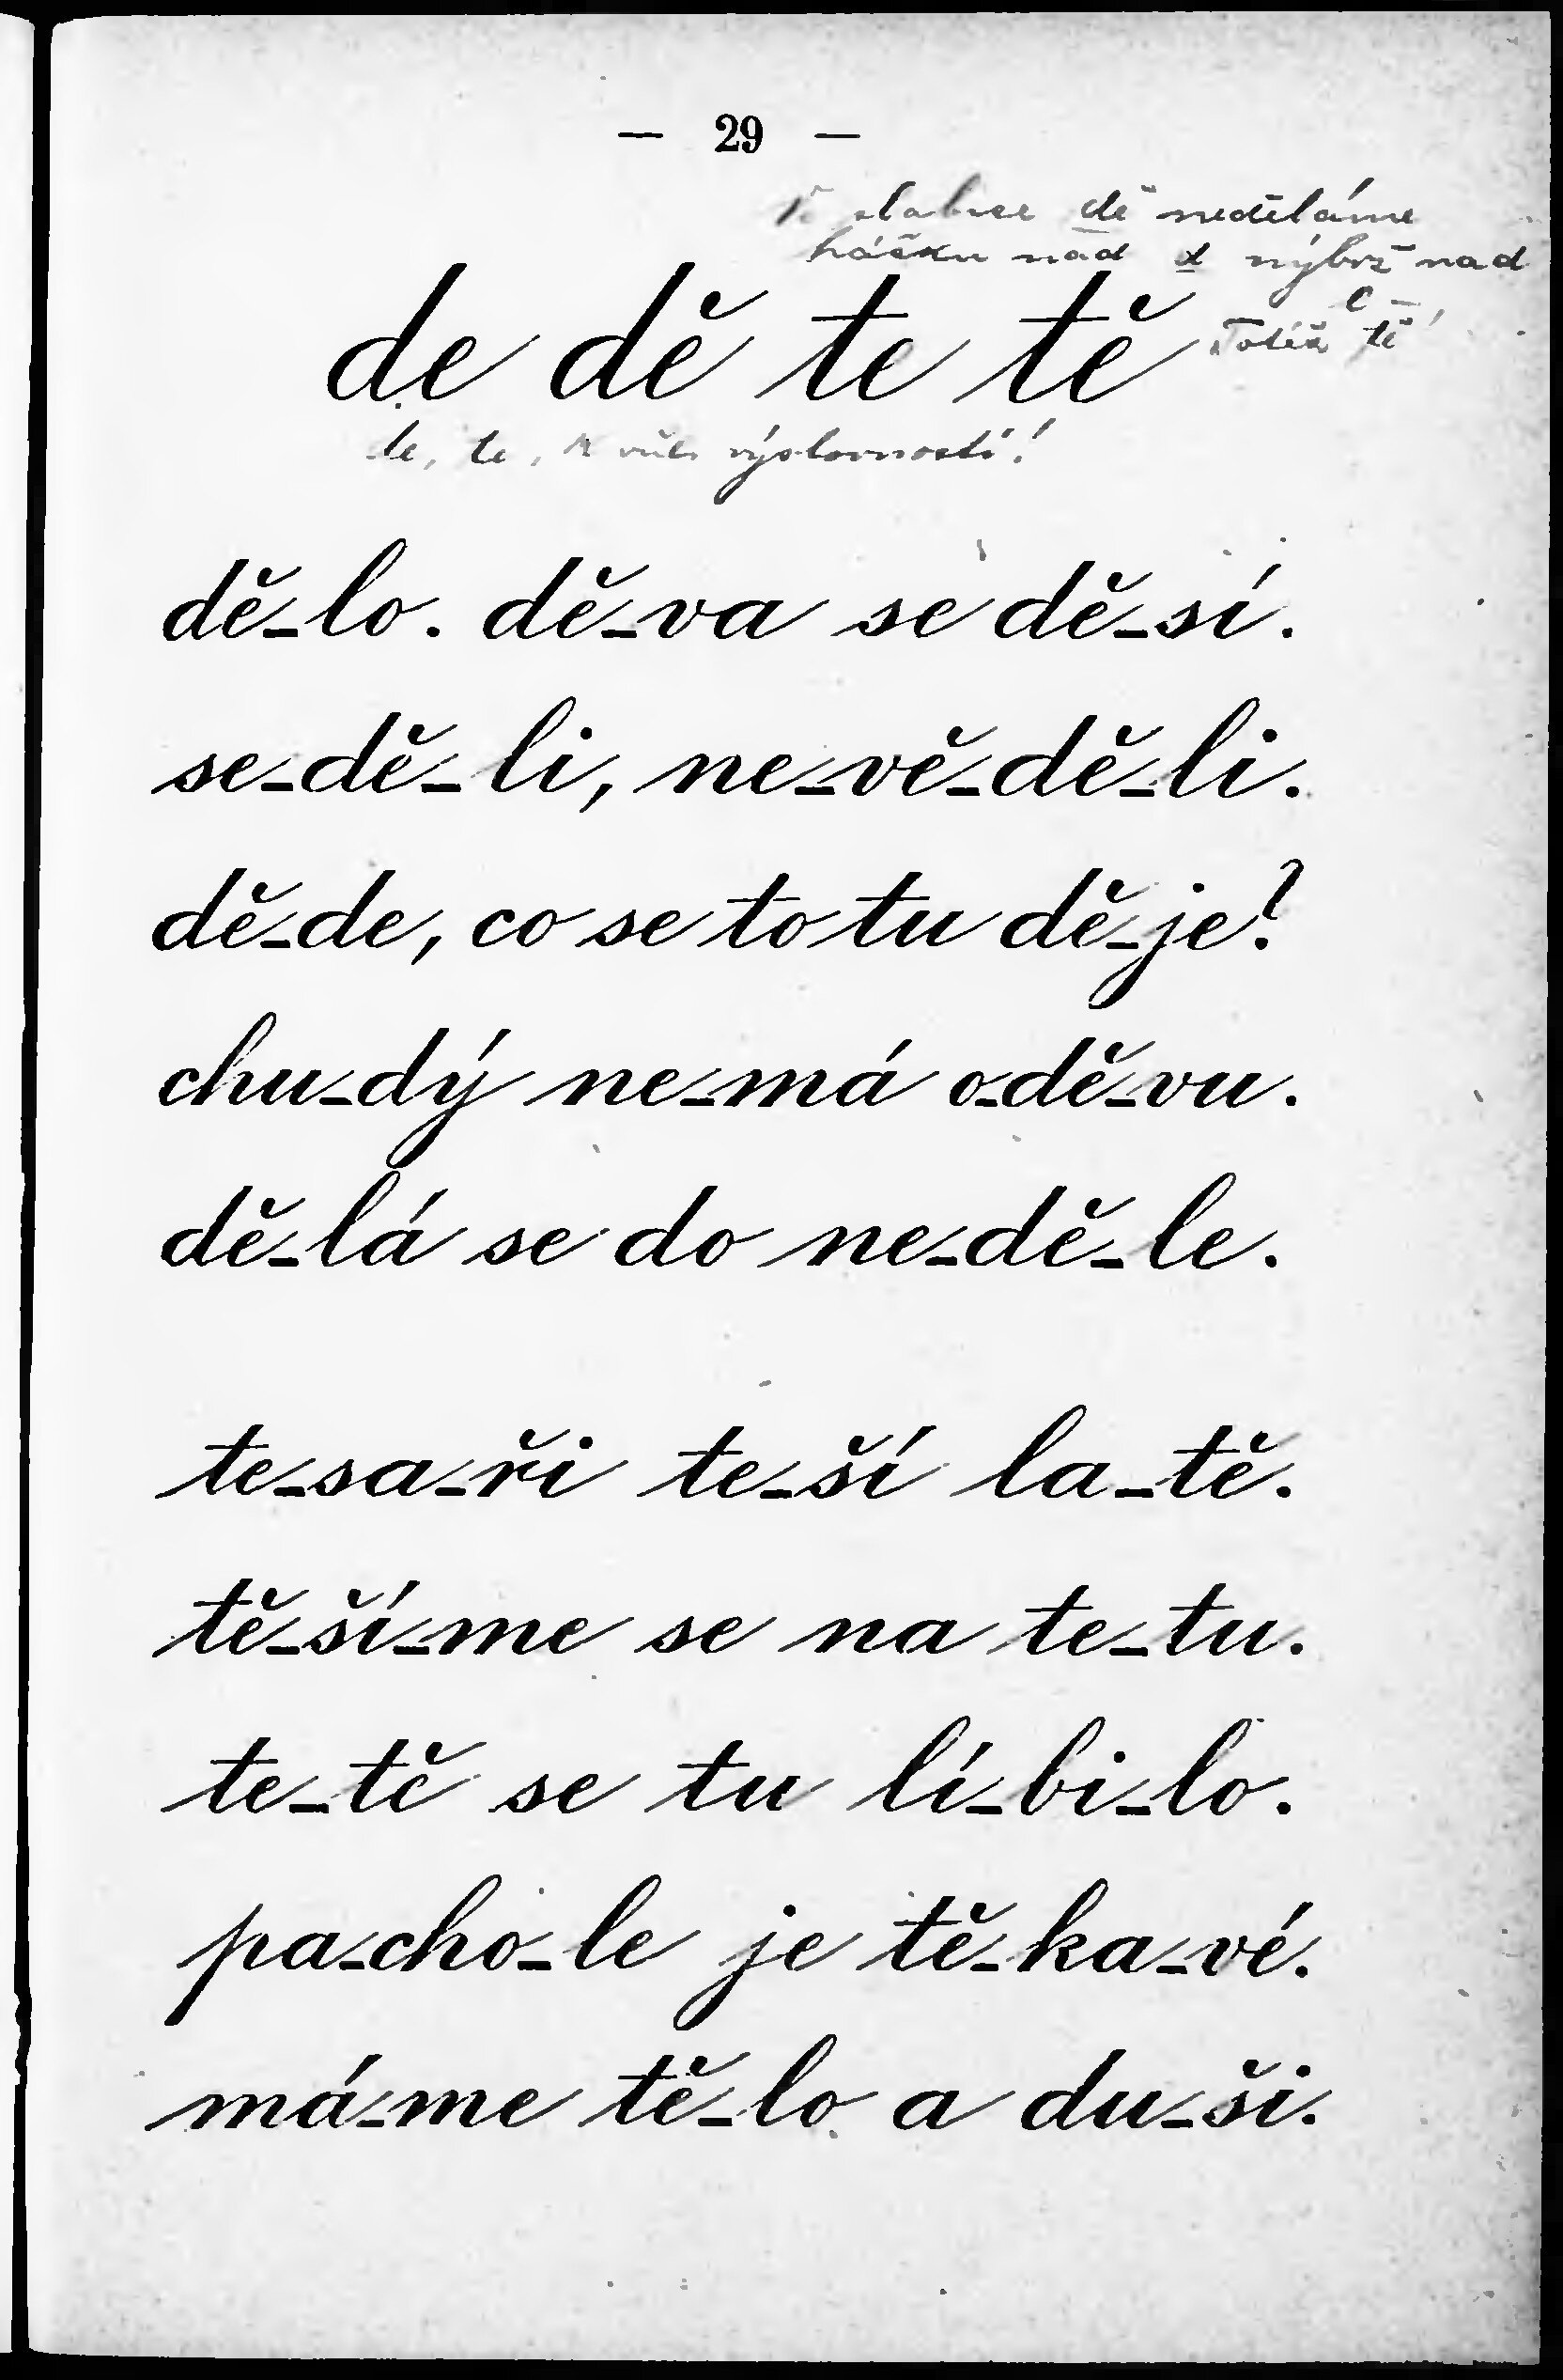 — 29 —
slabice dě neděláme
háčku nad d nýbrž nad
e
Totéž tě!
de dě te tě
te, te, výslovnosti!
dě-lo. dě-va se dě-sí.
se-dě-li, ne-vě-dě-li.
dě-de, co se to tu dě-je?
chu-dý ne-má o-dě-vu.
dě-lá se do ne-dě-le.
te-sa-ři te-ší la-tě.
tě-ší-me se na te-tu.
te-tě se tu lí-bi-lo.
pa-cho-le je tě-ka-vé.
má-me tě-lo a du-ši.